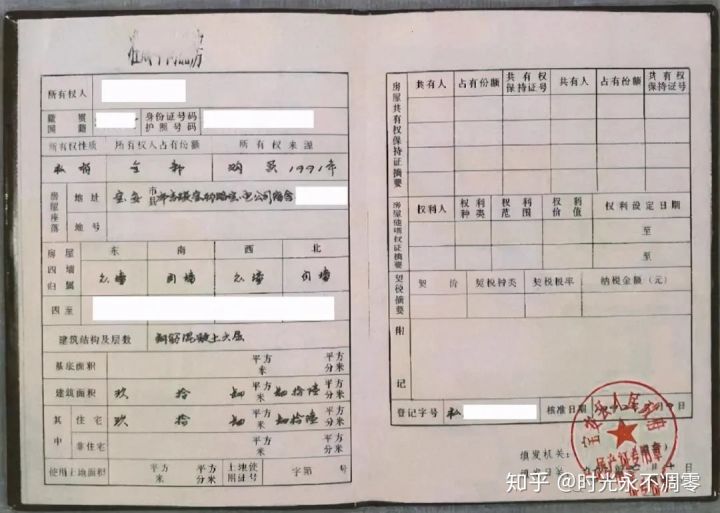 所有权人
籍贯 国籍 身份证号码 护照号码
所有权性质 所有权人占有份额 所有权来源
私有 全部 购买 1991年
房屋座落 地址 宝安 市县
地号
房屋四墙归属 东 南 西 北
公墙 自墙 公墙 自墙
四至
建筑结构及层数 钢筋混凝土六层
基底面积 平方米 平方分米
建筑面积 玖 拾 平方米 平方分米
其中 住宅 玖 拾 平方米 平方分米
非住宅 平方米 平方分米
使用土地面积 平方米 平方分米 土地使用证号 字第 号
房屋共有权保持证摘要 共有人 占有份额 共有权保持证号 共有人 占有份额 共有权保持证号
权利人 权利种类 权利范围 权利价值 权利设定日期
至
至
契税摘要 契价 契税种类 契税税率 纳税金额（元）
附记
登记字号 私 核准日期
填发机关：
填发日期
房产证专用章
知乎 @时光永不凋零